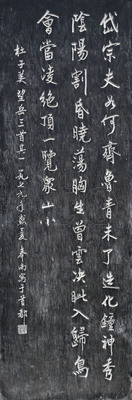 岱宗夫如何齊魯青未了造化鍾神秀
陰陽割昏曉蕩胸生曾雲決眦入歸鳥
會當凌絕頂一覽衆山小
杜子美望岳三首其一 一九七九年熱夏春南寫于首都